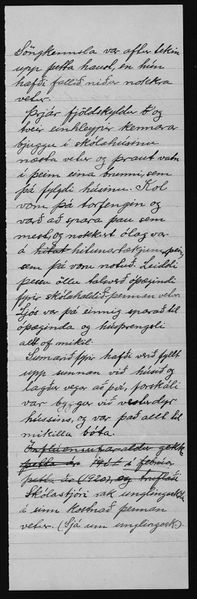 Söngkennsla var aftur tekin
upp þetta haust, en hún
hafði fallið niður nokkra
vetur.
Þrjár fjölskyldur og
tveir einhleypir kennarar
bjuggu í skólahúsinu
næsta vetur og þraut vatn
í þeim eina brunni, sem
þá fylgdi húsinu. Kol
voru þá torfengin og
varð að spara þau sem
mest, og nokkurt ólag var
á hitunartækjum,
sem þá voru notuð. Leiddi
þetta öllu talsverð óþægindi
fyrir skólahaldið þennan vetur.
Ljós var þá einnig sparað til
óþæginda og húsþrengsli
allt of mikil.
Sumarið fyrir hafði verið fyllt
upp sunnan við húsið og
lagður vegur að þá, forskáli
var byggður við vesturdyr
hússins, og var það allt til
mikilla bóta.
þetta ár
(1920), og
Skólastjóri rak unglingaskóla
í sinn kostnað þennan
vetur. (Sjá um unglingask.)